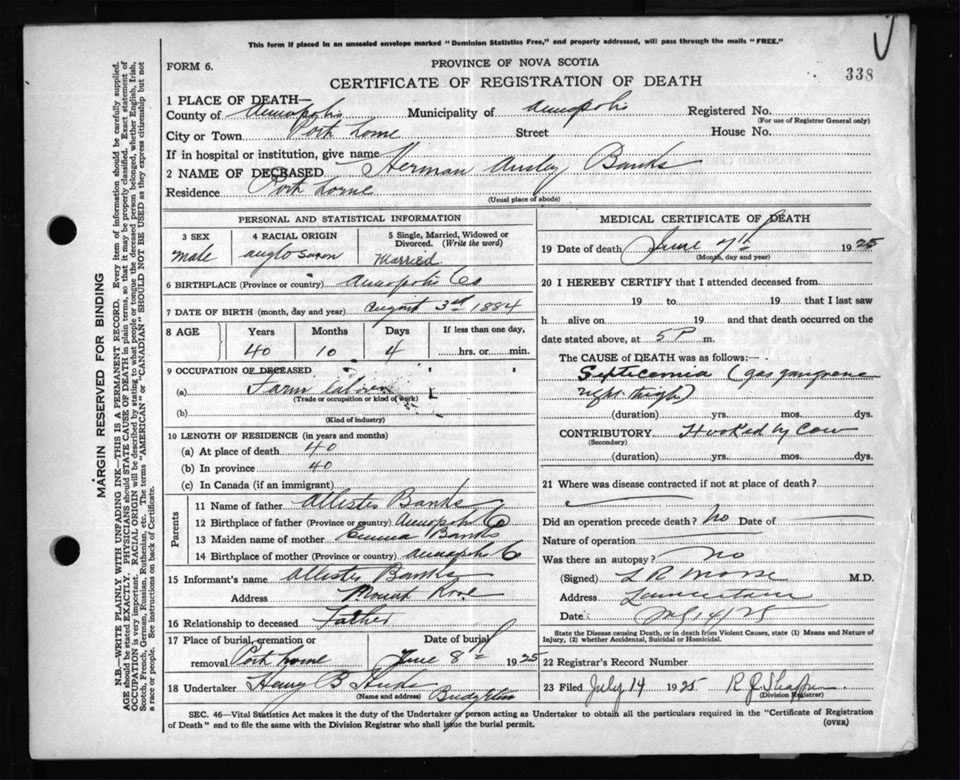 This form if placed in an unsealed envelope marked "Dominion Statistics Free," and properly addressed, will pass through the mails "FREE."
FORM 6.
PROVINCE OF NOVA SCOTIA
338
CERTIFICATE OF REGISTRATION OF DEATH
1 PLACE OF DEATH—
County of Annapolis Municipality of Annapolis Registered No.
(For use of Registrar General only)
City or Town Port Lorne Street House No.
If in hospital or institution, give name
2 NAME OF DECEASED Herman Ansley Banks
Residence Port Lorne
(Usual place of abode)
PERSONAL AND STATISTICAL INFORMATION
3 SEX 4 RACIAL ORIGIN 5 Single, Married, Widowed or Divorced. (Write the word)
Male anglo saxon Married
6 BIRTHPLACE (Province or country) Annapolis Co
7 DATE OF BIRTH (month, day and year) August 3rd 1884
8 AGE Years Months Days If less than one day,
40 10 4 hrs. or min.
9 OCCUPATION OF DECEASED
(a) Farm laborer
(Trade or occupation or kind of work)
(b)
(Kind of industry)
10 LENGTH OF RESIDENCE (in years and months)
(a) At place of death 40
(b) In province 40
(c) In Canada (if an immigrant)
Parents
11 Name of father Allister Banks
12 Birthplace of father (Province or country) Annapolis Co
13 Maiden name of mother Emma Banks
14 Birthplace of mother (Province or country) Annapolis Co
15 Informant's name Allister Banks
Address Mount Rose
16 Relationship to deceased Father
17 Place of burial, cremation or removal Port Lorne Date of burial June 8th 1925
18 Undertaker Henry B Hicks
(Name and address) Bridgetown
MEDICAL CERTIFICATE OF DEATH
19 Date of death June 7th 1925
(Month, day and year)
20 I HEREBY CERTIFY that I attended deceased from
19 to 19 that I last saw
h alive on 19 and that death occurred on the
date stated above, at 5 P m.
The CAUSE of DEATH was as follows:—
Septicemia (gas gangrene
right thigh)
(duration) yrs. mos. dys.
CONTRIBUTORY Hooked by Cow
(Secondary)
(duration) yrs. mos. dys.
21 Where was disease contracted if not at place of death?
Did an operation precede death? No Date of
Nature of operation
Was there an autopsy? No
(Signed) L R Morse M.D.
Address Lawrencetown
Date July 14/25
State the Disease causing Death, or in death from Violent Causes, state (1) Means and Nature of Injury, (2) whether Accidental, Suicidal or Homicidal.
22 Registrar's Record Number
23 Filed July 14 1925
(Division Registrar)
SEC. 46—Vital Statistics Act makes it the duty of the Undertaker or person acting as Undertaker to obtain all the particulars required in the "Certificate of Registration
of Death" and to file the same with the Division Registrar who shall issue the burial permit. (OVER)
MARGIN RESERVED FOR BINDING
N.B.—WRITE PLAINLY WITH UNFADING INK—THIS IS A PERMANENT RECORD. Every item of information should be carefully supplied.
AGE should be stated EXACTLY. PHYSICIANS should STATE CAUSE OF DEATH in plain terms, so that it may be properly classified. Exact statement of
OCCUPATION is very important. RACIAL ORIGIN will be described by stating to what people or tongue the deceased person belonged, whether English, Irish,
Scotch, French, German, Russian, Ruthenian, etc. The terms "AMERICAN" or "CANADIAN" SHOULD NOT BE USED as they express citizenship but not
a race or people. See instructions on back of Certificate.